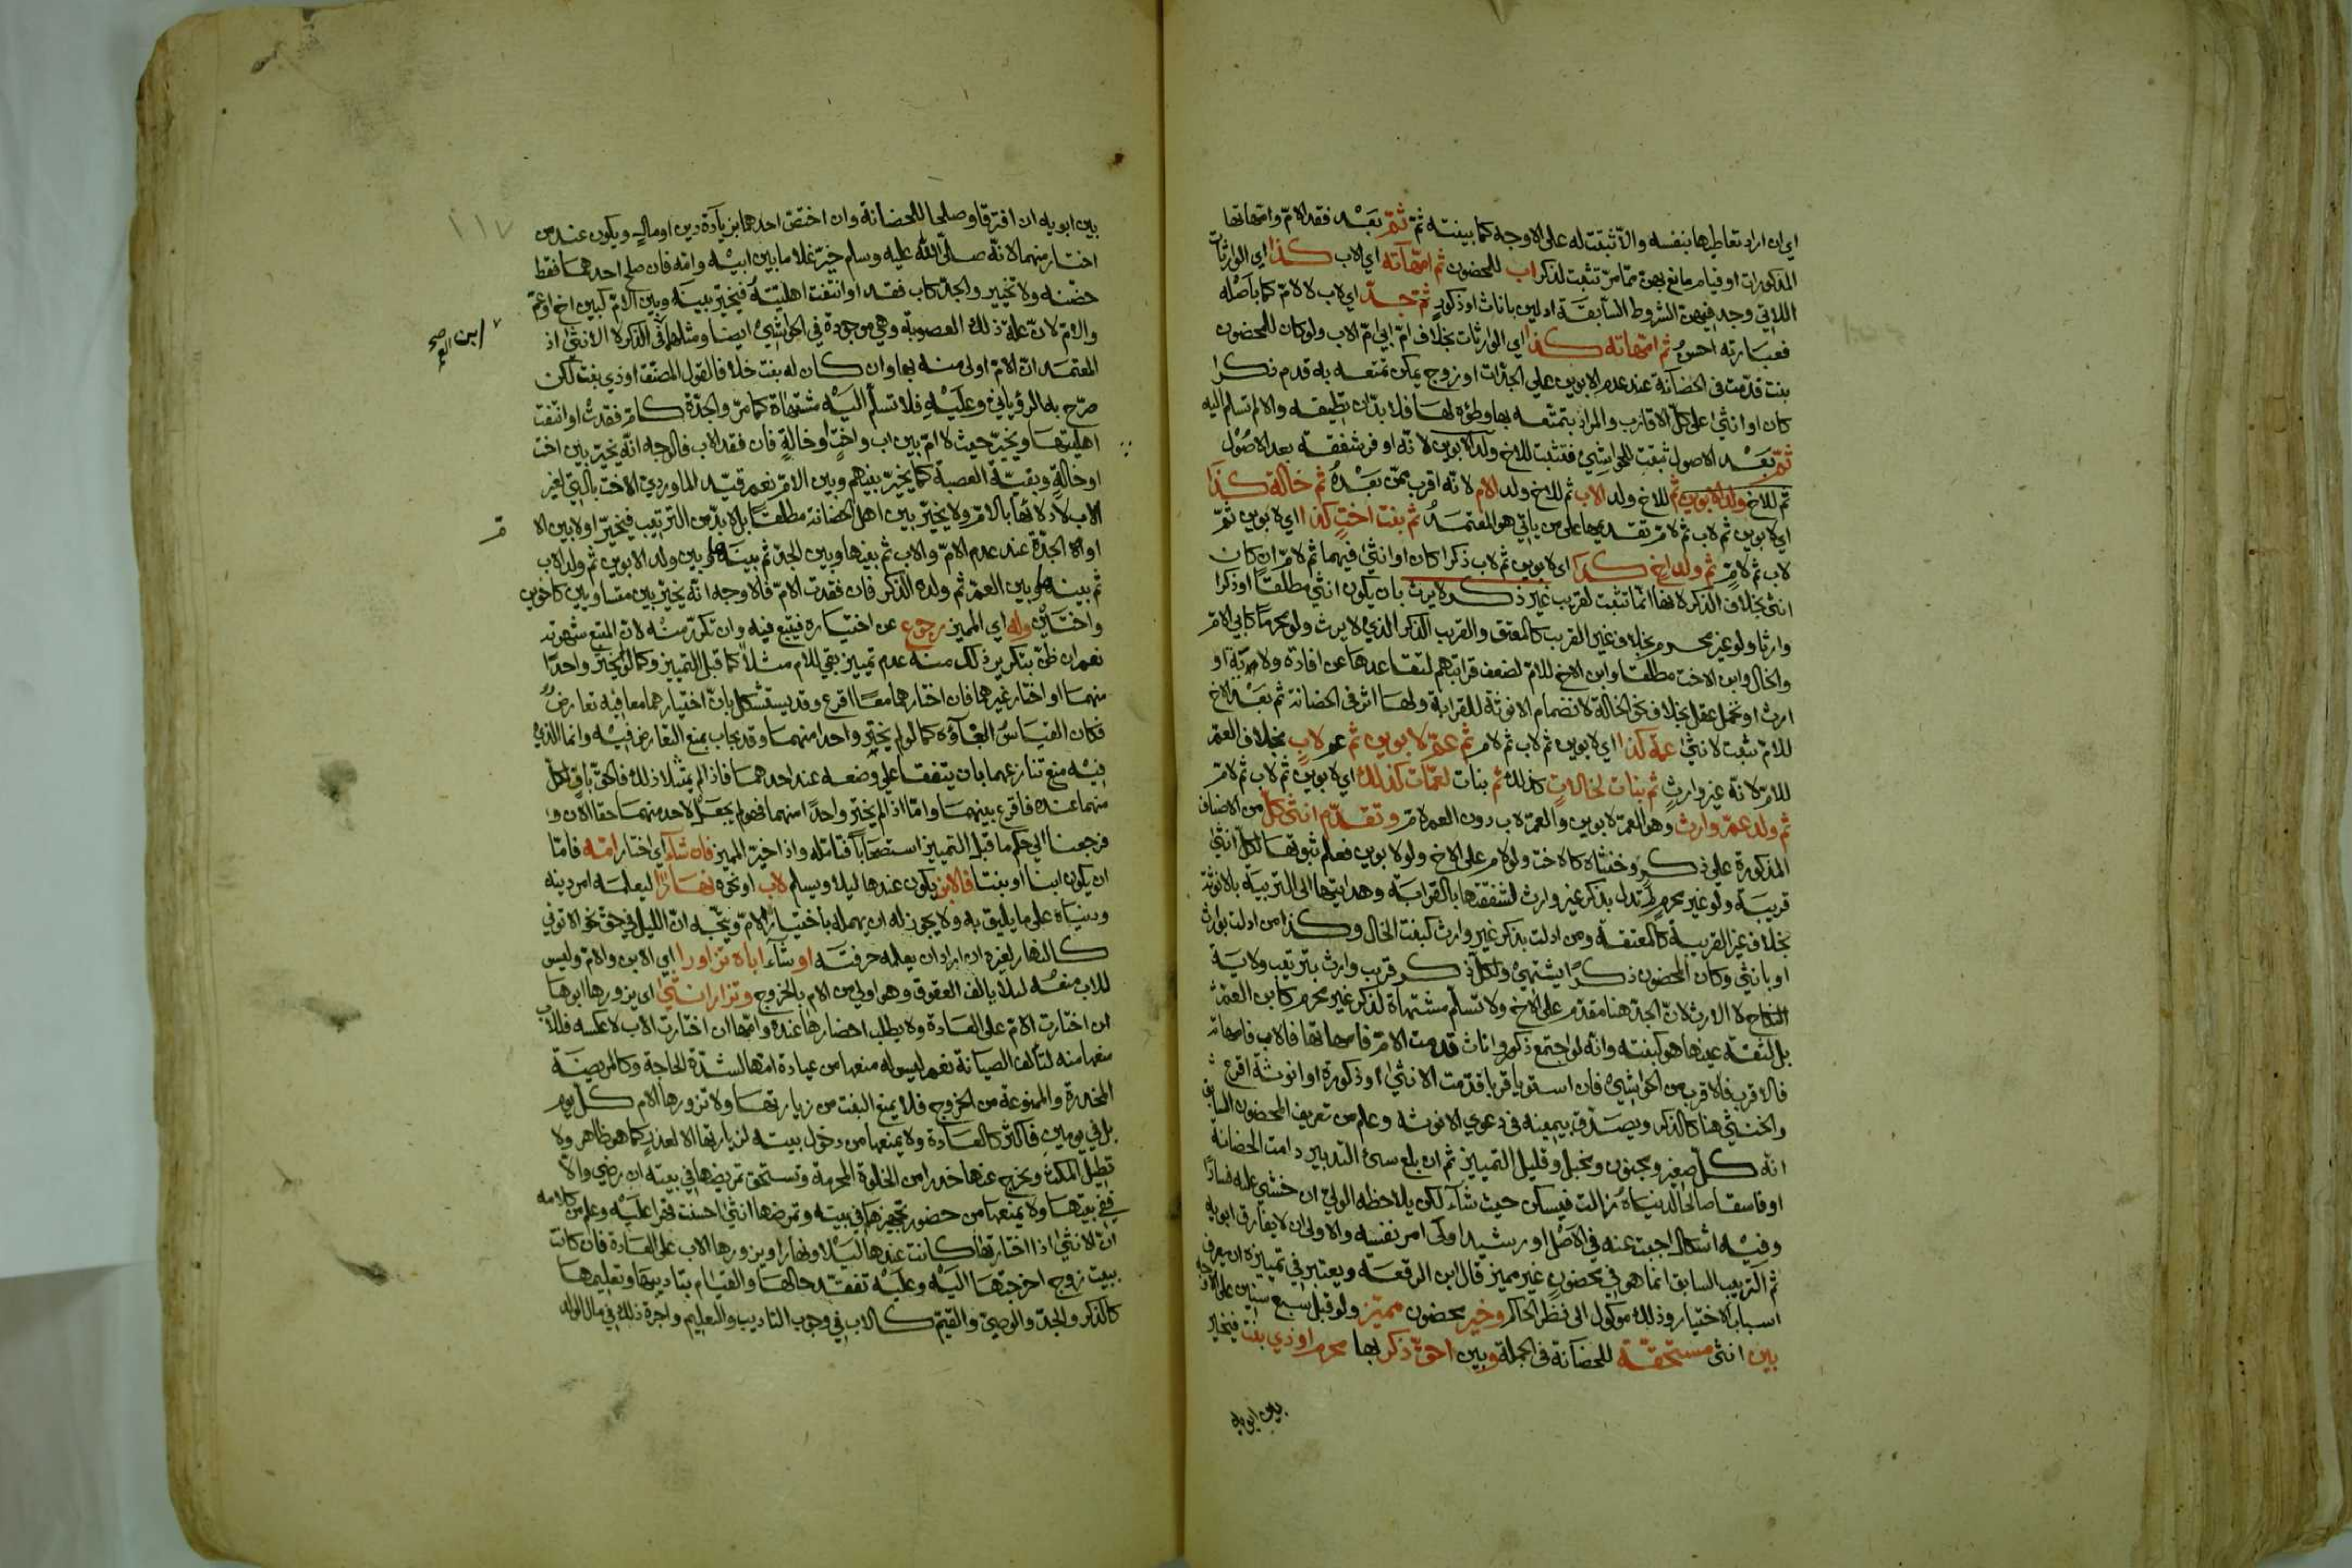 اي ان اراد تعاطيها بنفسه والا ثبتت له على الاوجه كما بينته ثم بَعْد فقد الامّ وامهاتها
المذكورات او قيام مانع بهن ممّا مرّ تثبت لذكر اب للمحضون ثم امهاته اي الاب كذا اي الوارثات
اللاتي وجد فيهن الشروط السابقة ادلين باناث او ذكور ثم جدّ اي لاب لا لامّ كما باصله
فعبارته احسن ثم امهاته كذا اي الوارثات بخلاف امّ ابي امّ الاب ولو كان للمحضون
بنت قدّمت في الحضانة عند عدم الابوين على الجدّات او زوج يمكن تمتعه به قدم ذكرا
كان او انثى على كلّ الاقارب والمراد بتمتعه بها وطؤه لها فلا بدّ ان تطيقه والا لم تسلم اليه
ثمّ بَعْد الاصول ثبتت للحواشي فتثبت للاخ ولد الابوين لانه اوفر شفقة بعد الاصُوْل
ثم للاخ ولد الابوين ثم للاخ ولد الاب ثم للاخ ولد الام لانه اقرب ممّن بَعْدهُ ثم خالة كذا
اي لابوين ثم لاب ثم لامّ تقديمها على من ياتي هو المعتمدُ ثم بنت اختٍ كذا اي لابوين ثمّ
لاب ثم لامّ ثم ولد اخ كذا اي لابوين ثم لاب ذكرا كان او انثى فيهما ثم لامّ ان كان
انثى بخلاف الذكر لانها انّما تثبت لقريب غير ذكر لا يرث بان يكون انثى مطلقا او ذكرا
وارثا ولو غير محرم بخلاف غير القريب كالمعتق والقريب الذكر الذي لا يرث ولو محرمًا كابي الامّ
والخال وابن الاخت مطلقا وابن الاخ للامّ لضعف قرابتهم لتقاعدها عن افادة ولاية او
ارث او تحمل عقل بخلاف نحو الخالة لانضمام الانوثة للقرابة ولها اثر في الحضانة ثم بَعْد الاخ
للامّ تثبت لانثى عمّة كذا اي لابوين ثم لاب ثم لامّ ثم عمّ لابوين ثم عم لابٍ بخلاف العمّ
للامّ لانه غير وارثٍ ثم بنات لخالاتٍ كذلك ثم بنات لعمّات كذلك اي لابوين ثم لاب ثم لامّ
ثم ولد عمّ وارث وهو العمّ لابوين والعمّ لاب دون العم لامّ وتقدّم انثى كلٍّ من الاصناف
المذكورة على ذكرٍ وخنثاه كالاخت ولو لام على الاخ ولو لابوين فعلم ثبوتها لكلّ انثى
قريبة ولو غير محرمٍ لم تدل بذكر غير وارث لشفقتها بالقرابة وهدايتها الى التربية بالانوثة
بخلاف غير القريبة كالمعتقة ومن ادلت بذكر غير وارث كبنت الخال وكذا من ادلت بوارث
او بانثى وكان المحضون ذكرًا يشتهي ولكل ذكر قريب وارث بترتيب ولاية
النكاح لا الارث لانّ الجدّ هنا مقدّم على الاخ ولا تسلّم مشتهاة لذكر غير محرم كابن العمّ
بل لثقة عيّنها هو كبنته وانه لو اجتمع ذكور واناث قدمت الامّ فامهاتها فالاب فامهاته
فالاقرب فالاقرب من الحواشي فان استويا قربا قدّمت الانثى او ذكورة او انوثة اقرع
والخنثى هنا كالذكر ويصدّق بيمينه في دعوى الانوثه وعلم من تعريف المحضون السابق
انه كلّ صغير ومجنون ومختبل وقليل التمييز ثم ان بلغ سئ التدبير دامت الحضانة
او فاسقا صالحا لدنياه زالت فيسكن حيث شآء لكن يلاحظه الولي ان خشي عليه فسادًا
وفيه اشكال اجبت عنه في الاصْل او رشيدا ولّى امر نفسه والاولى ان لا يفارق ابويه
ثم الترتيب السابق انما هو في محضونٍ غير مميز قال ابن الرفعة ويعتبر في تمييزه ان يعرف
اسباب الاختيار وذلك موكول الى نظر الحاكم وخير محضون مميّز ولو قبل سبع سنين على الاوجه
بين انثى مستحقّة للحضانة في الجملة وبين احقّ ذكر بها محرم او ذي بنت فيخيّر
بين ابويه
١١٧
بين ابويه ان افترقا وصلحا للحضانة وان اختصّ احدهما بزيادة دين او مالٍ ويكون عند من
اختار منهما لانّه صلّى الله عليه وسلم خيّر غلاما بين ابيه وامّه فان صلح احدهما فقط
حضنه ولا تخيير والجدّ كاب فقد او انتفت اهليّته فيخيّر بينه وبين الامّ كبين اخ او عمّ
ابن العم صح
والامّ لانّ علة ذلك العصوبة وهي موجودة في الحواشي ايضا ومثلهما في الذكر لا الانثى اذ
المعتمد ان الامّ اولى منه بها وان كان له بنت خلافا لقول المصنّف او ذي بنت لكن
صرّح به الروياني وعليه فلا تسلّم اليه مشتهاة كما مرّ والجدّة كامّ فقدت او انتفت
اهليتها ويخيّر حيث لا امّ بين اب واختٍ او خالةٍ فان فقد الاب فالوجه انّه يخيّر بين اخت
او خالةٍ وبقيّة العصبة كما يخيّر بينهم وبين الامّ نعم قيّد الماوردي الاخت بالّتي لغير
الاب لادلائها بالامّ ولا يخيّر بين اهل الحضانة مطلقا بل لا بدّ من الترتيب فيخيّر اولا بين الا
او امّ الجدّة عند عدم الامّ والاب ثم بينها وبين الجدّ ثم بينها وبين ولد الابوين ثم ولد الاب
ثم بينها وبين العمّ ثم ولده الذكر فان فقدت الامّ فالاوجه انّه يخيّر بين متساويين كاخوين
واختين وله اي المميز رجوع عن اختياره فيتبع فيه وان تكرّر منه لان المتبع شهوته
نعم ان ظنّ بتكرير ذلك منه عدم تمييز بقي للام مثلا كما قبل التمييز وكما لو يختر واحدًا
منهما او اختار غيرهما فان اختارهما معًا اقرع وقد يستشكل بانّ اختيارهما معا فيه تعارضٌ
فكان القياسُ الغآؤه كما لو لم يختر واحدا منهما وقد يجاب بمنع التعارض فيه وانما الذي
فيه منع تنازعهما بان يتفقا على وضعه عند احدهما فاذا لم يمتثلا ذلك فالحقّ باقٍ لكلّ
منهما عنده فاقرع بينهما وامّا اذا لم يختر واحدًا منهما فهو لم يجعل لاحد منهما حقا الان و
فرجعنا الى حكم ما قبل التمييز استصحابًا فتامّله واذا خيّر المميز فان شآء اي اختار امّه فامّا
ان يكون ابنا او بنتا فالابن يكون عندها ليلا ويسلم لاب او نحوه نهارًا ليعلمه امر دينه
ودنياه على ما يليق به ولا يجوز له ان يهمله باختيار الامّ ويتّجه انّ الليل في حقّ نحو الاتوني
كالنهار لغيره ان اراد ان يعلمه حرفته او شآء اباه تزاورا اي الابن والامّ وليس
للاب منعُه لئلا يالف العقوق وهو اولى من الام بالخروج وتزار انثى اي يزورها ابوها
ان اختارت الامّ على العادة ولا يطلب احضارها عنده وامّها ان اختارت الاب لا عكسه فللاب
منعها منه لتالف الصيانة نعم ليس له منعها من عيادة امّها لشدّة الحاجة وكالمريضة
المخدرة والممنوعة من الخروج فلا يمنع البنت من زيارتها ولا تزورها الام كلّ يوم
بل في يومين فاكثر كالعادة ولا يمنعها من دخول بيته لزيارتها الا لعذرٍ كما هو ظاهر ولا
تطيل المكث ويخرج عنها حذرا من الخلوة المحرمة وتستحق تمريضها في بيته ان رضي والّا
ففي بيتها ولا يمنعها من حضور تجهيزها في بيته وتمرضها انثى احسنت تفخرا عليه وعلم من كلامه
ان الانثى اذا اختارتها كانت عندها ليلا ونهارا ويزورها الاب على العادة فان كانت
ببيت زوج اخرجتها اليه وعليه تفقّد حالها والقيام بتاديبها وتعليمها
كالذكر والجدّ والوصيّ والقيّم كالاب في وجوب التاديب والتعليم واجرة ذلك في مال الولد